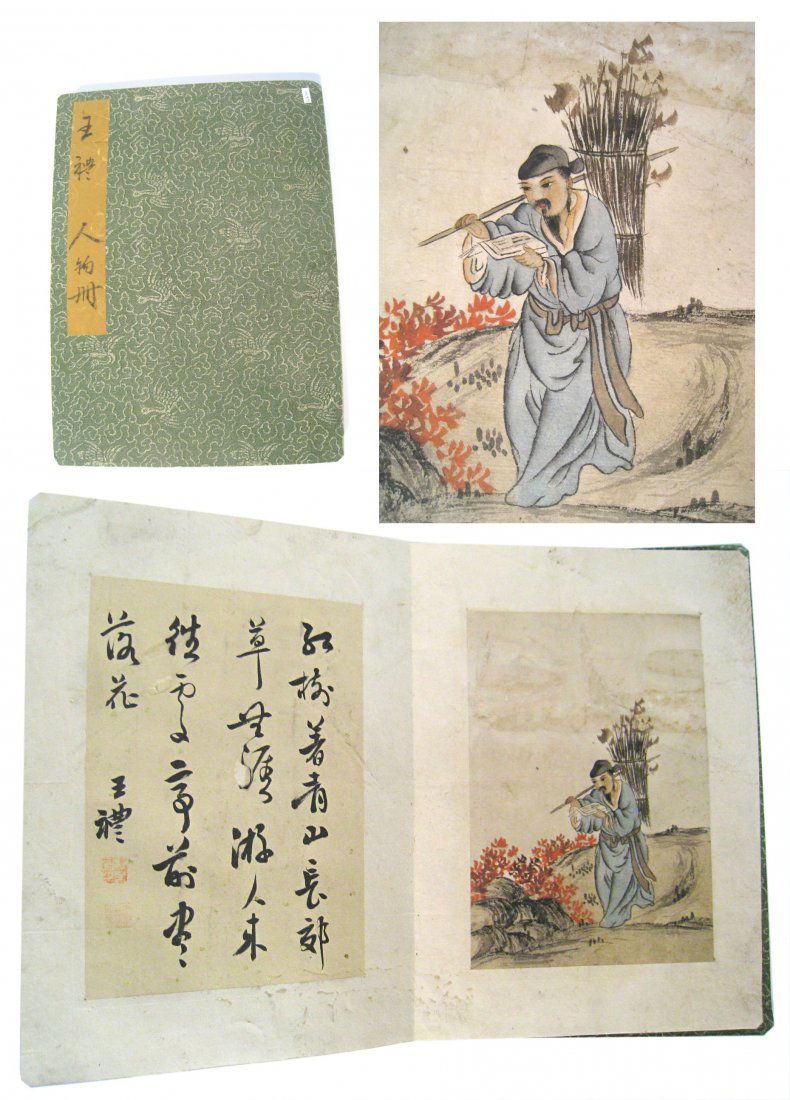 王禮 人物冊
紅樹著青山長郊
草無涯游人來
往處亭前盡
落花
王禮